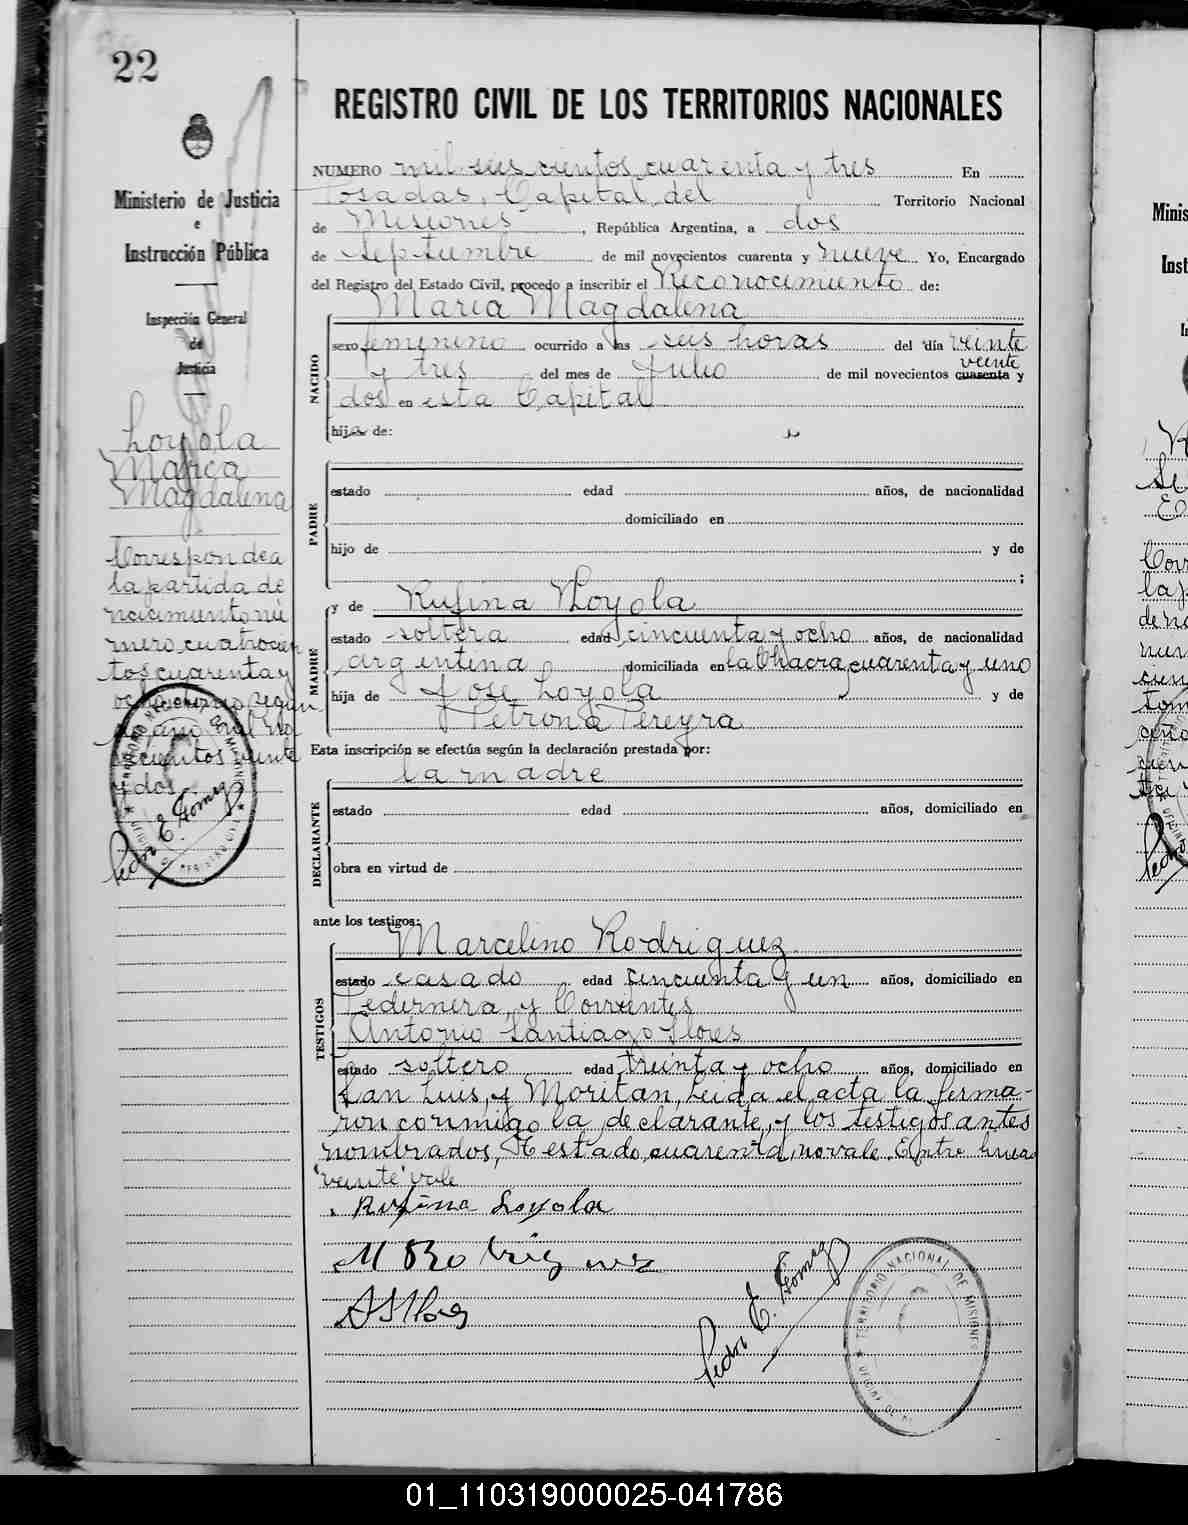 22
Ministerio de Justicia
e
Instrucción Pública
Inspección General
de
Justicia
Loyola
María
Magdalena
Corresponde a
la partida de
nacimiento nú
mero cuatrocien
tos cuarenta y
ocho
cientos veinte
y dos
Pedro E. Gomez
REGISTRO CIVIL DE LOS TERRITORIOS NACIONALES
NUMERO mil seis cientos cuarenta y tres En
Posadas, Capital del Territorio Nacional
de Misiones, República Argentina, a dos
de septiembre de mil novecientos cuarenta y nueve Yo, Encargado
del Registro del Estado Civil, procedo a inscribir el Reconocimiento de:
María Magdalena
NACIDO
sexo femenino ocurrido a las seis horas del día veinte
y tres del mes de Julio de mil novecientos cuarenta veinte y
dos en esta Capital
hija de:
PADRE
estado edad años, de nacionalidad
domiciliado en
hijo de y de
;
MADRE
y de Rufina Loyola
estado soltera edad cincuenta y ocho años, de nacionalidad
argentina domiciliada en la Chacra cuarenta y uno
hija de Jose Loyola y de
Petrona Pereyra
Esta inscripción se efectúa según la declaración prestada por:
la madre
DECLARANTE
estado edad años, domiciliado en
obra en virtud de
ante los testigos:
TESTIGOS
Marcelino Rodriguez
estado casado edad cincuenta y un años, domiciliado en
Pedernera y Corrientes
Antonio Santiago Flores
estado soltero edad treinta y ocho años, domiciliado en
San Luis y Moritan, Leida el acta la firma-
ron conmigo la declarante, y los testigos antes
nombrados, Testado, cuarenta, no vale. Entre lineas
"veinte" vale
Rufina Loyola
M Rodriguez
A S Flores
Pedro E. Gomez
TERRITORIO NACIONAL DE MISIONES
01_110319000025-041786